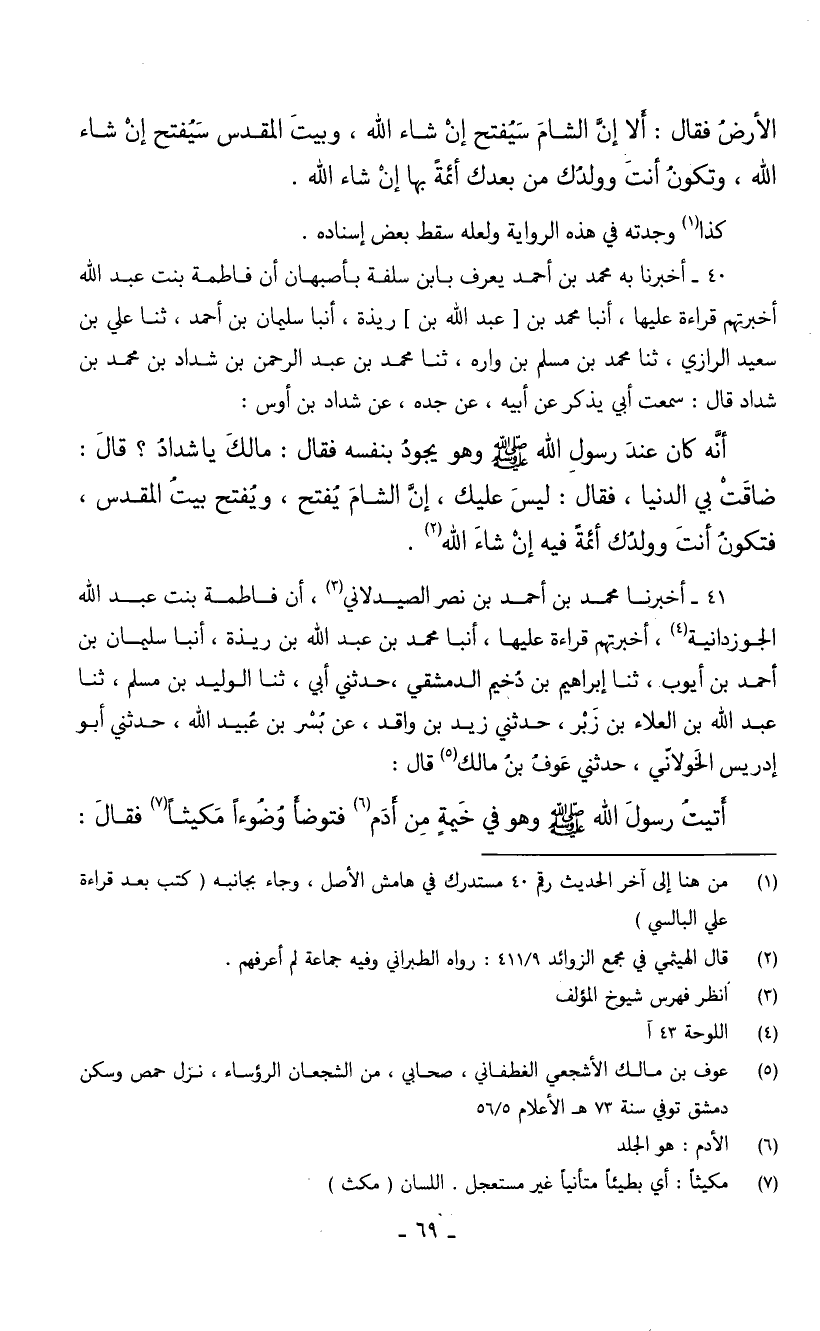 الأرضُ فقال : أَلا إنَّ الشامَ سَيُفتح إنْ شاء الله ، وبيتَ المقدس سَيُفتح إنْ شاء
الله ، وتكونُ أنتَ وولدُك من بعدك أئمةً بها إنْ شاء الله .
كذا(١) وجدته في هذه الرواية ولعله سقط بعض إسناده .
٤٠ ـ أخبرنا به محمد بن أحمد يعرف بابن سلفة بأصبهان أن فاطمة بنت عبد الله
أخبرتهم قراءة عليها ، أنبا محمد بن [ عبد الله بن ] ريذة ، أنبا سليمان بن أحمد ، ثنا علي بن
سعيد الرازي ، ثنا محمد بن مسلم بن واره ، ثنا محمد بن عبد الرحمن بن شداد بن محمد بن
شداد قال : سمعت أبي يذكر عن أبيه ، عن جده ، عن شداد بن أوس :
أنَّه كان عندَ رسولِ الله ﷺ وهو يجودُ بنفسه فقال : مالكَ ياشدادُ ؟ قالَ :
ضاقَتْ بي الدنيا ، فقال : ليسَ عليك ، إنَّ الشامَ يُفتح ، ويُفتح بيتُ المقدس ،
فتكونُ أنتَ وولدُك أئمةً فيه إنْ شاءَ الله(٢) .
٤١ ـ أخبرنا محمد بن أحمد بن نصر الصيدلاني(٣) ، أن فاطمة بنت عبد الله
الجوزدانية(٤) ، أخبرتهم قراءة عليها ، أنبا محمد بن عبد الله بن ريذة ، أنبا سليمان بن
أحمد بن أيوب ، ثنا إبراهيم بن دُحَيم الدمشقي ،حدثني أبي ، ثنا الوليد بن مسلم ، ثنا
عبد الله بن العلاء بن زَبْر ، حدثني زيد بن واقد ، عن بُسْر بن عُبيد الله ، حدثني أبو
إدريس الخَولانّي ، حدثني عَوفُ بنُ مالك(٥) قال :
أَتيتُ رسولَ الله ﷺ وهو في خَيمةٍ مِن أَدَم(٦) فتوضأَ وُضُوءاً مَكيثاً(٧) فقالَ :
(١) من هنا إلى آخر الحديث رقم ٤٠ مستدرك في هامش الأصل ، وجاء بجانبه ( كتب بعد قراءة
علي البالسي )
(٢) قال الهيثمي في مجمع الزوائد ٤١١/٩ : رواه الطبراني وفيه جماعة لم أعرفهم .
(٣) أنظر فهرس شيوخ المؤلف
(٤) اللوحة ٤٣ آ
(٥) عوف بن مالك الأشجعي الغطفاني ، صحابي ، من الشجعان الرؤساء ، نزل حمص وسكن
دمشق توفي سنة ٧٣ هـ الأعلام ٥٦/٥
(٦) الأدم : هو الجلد
(٧) مكيثاً : أي بطيئاً متأنياً غير مستعجل . اللسان ( مكث )
ـ ٦٩ ـ